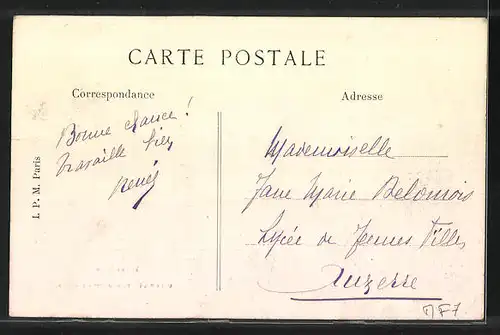 CARTE POSTALE
Correspondance
Adresse
Bonne chance!
Travaille bien
René
Mademoiselle
Jane Marie
Lycée de Jeunes Filles
Auxerre
I. P. M. Paris